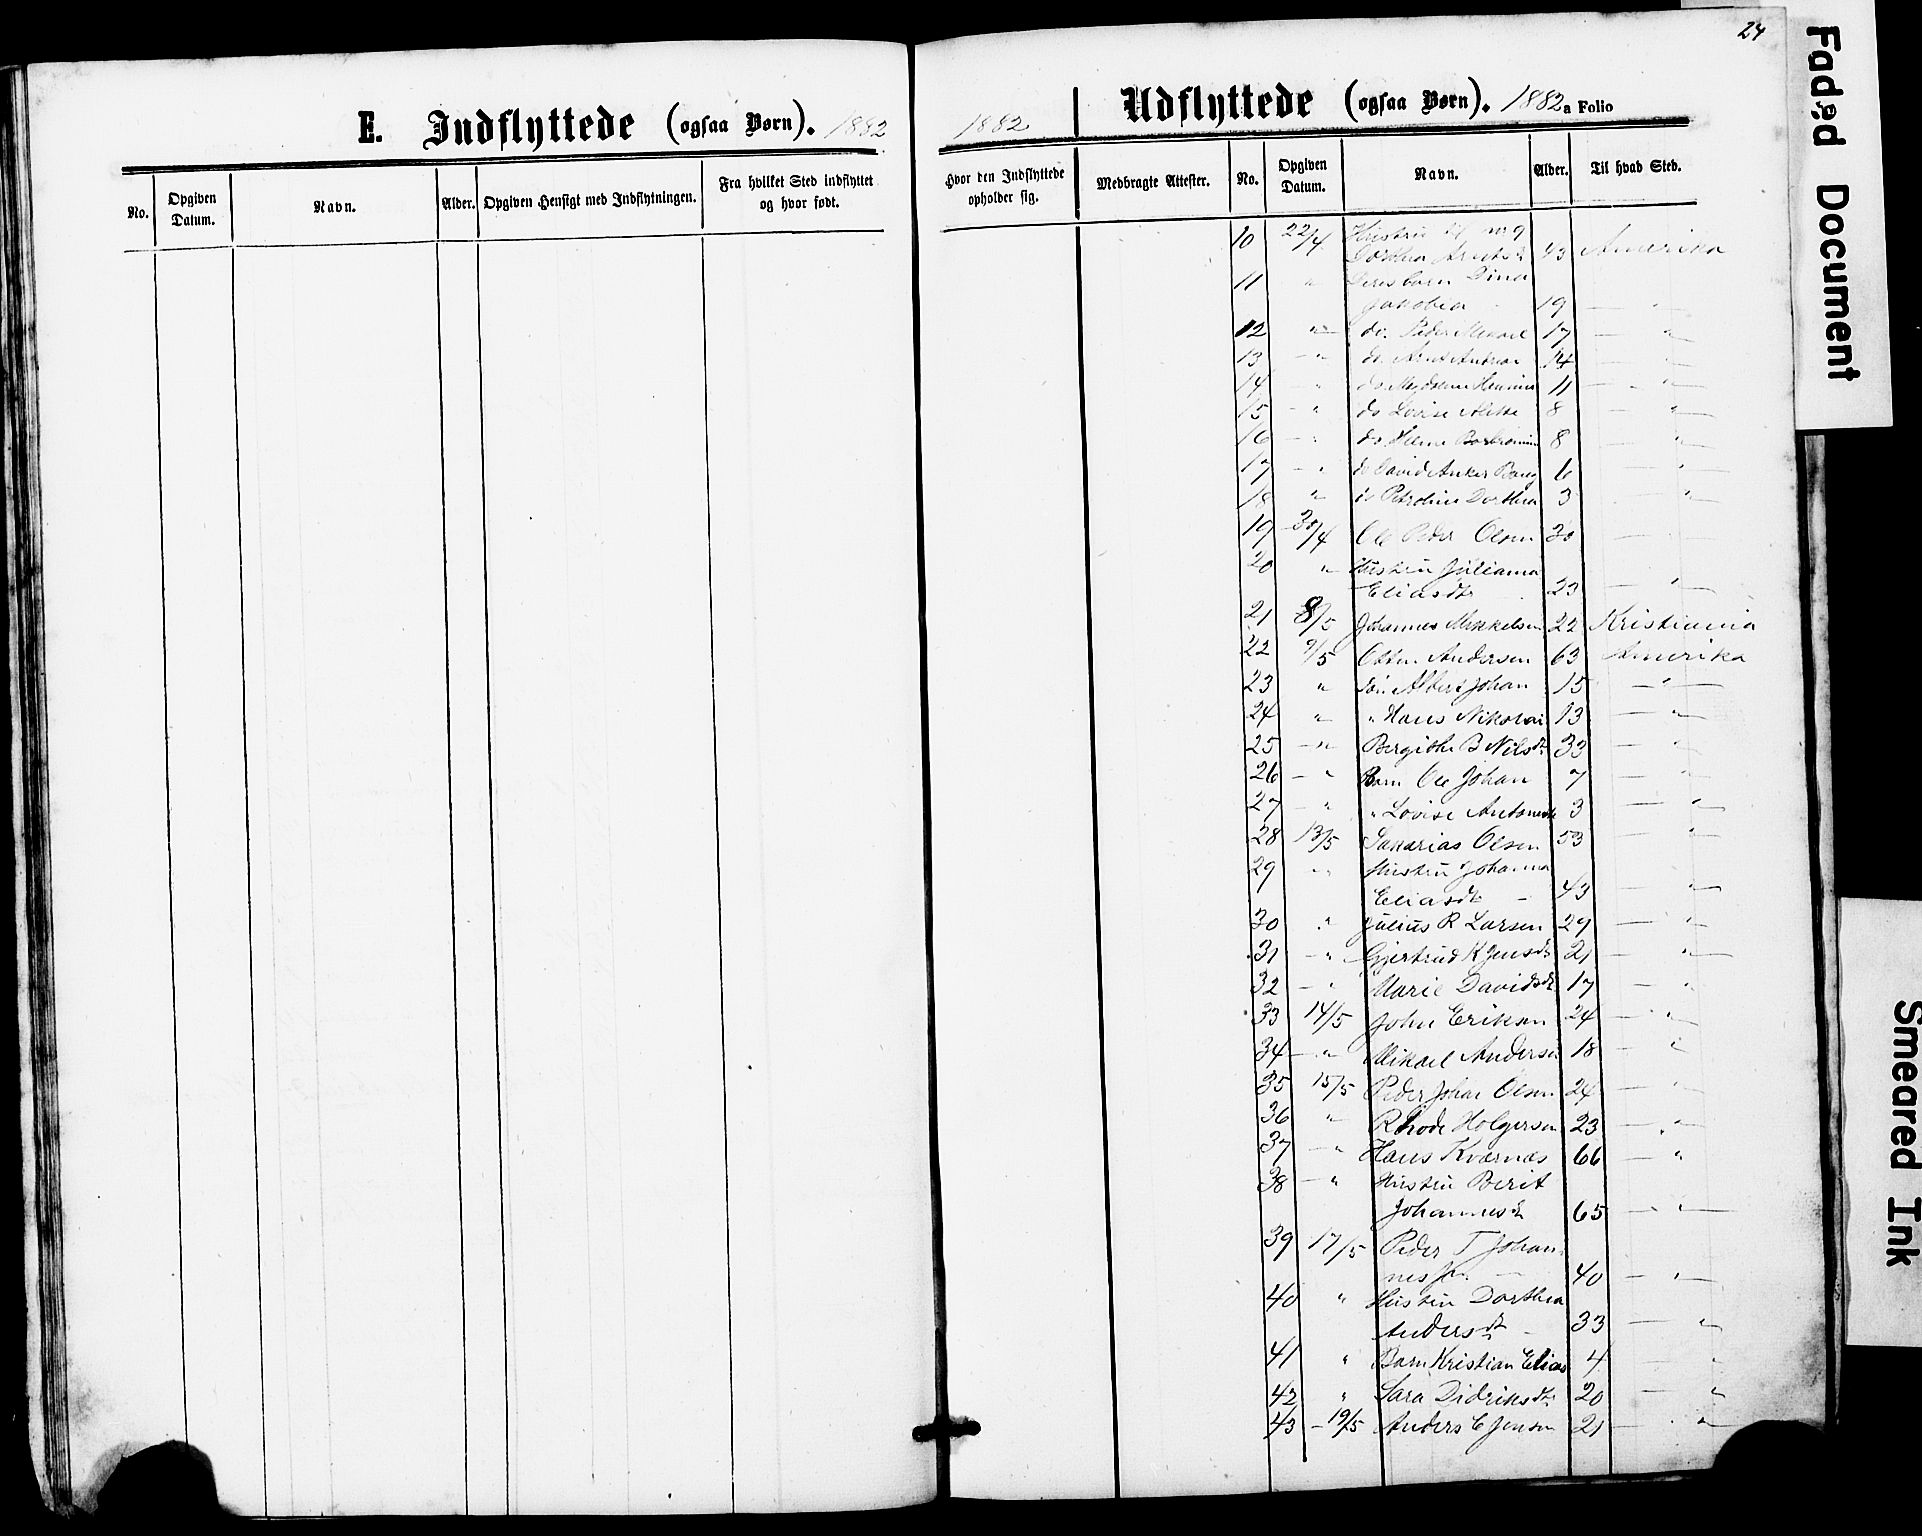 24
E. Indflyttede (ogsaa Børn). 1882
No. Opgiven Datum. Navn. Alder. Opgiven Hensigt med Indflytningen. Fra hvilket Sted indflyttet og hvor født.
1882 Udflyttede (ogsaa Børn). 1882 a Folio
Hvor den Indflyttede opholder sig. Medbragte Attester. No. Opgiven Datum. Navn. Alder. Til hvad Sted.
10 22/4 Hustru til no 9
43 Amerika
11 " Deres barn Dina
Jakobia 19 — " —
12 " do. Peder Mikael 17 — " —
13 — " do Arnt Andreas 14 — " —
14 — " do Magdalena 11 — " —
15 — " do Lovise 8 — " —
16 — " do. 8 — " —
17 — " do David Anker Bang 6 — " —
18 " do Petroline Dorthea 3 — " —
19 30/4 Ole Peder Olsen 30
20 " Hustru Juliana
Eliasdtr 23 — " —
21 8/5 Johannes Mikkelsen 22 Kristiania
22 9/5 Andersen 63 Amerika
23 " Søn Albert Johan 15 — " —
24 " " Hans Nikolai 13 — " —
25 — " Bergithe B Nilsdtr 33 — " —
26 — " Barn Ole Johan 7 — " —
27 — " " Lovise 3 — " —
28 13/5 Sakarias Olsen 53 — " —
29 " Hustru Johanna
Eliasdtr 43 — " —
30 " Julius R Larsen 29 — " —
31 — " Gjertrud K Jensdtr 21 — " —
32 — " Marie Davidsdtr 17 — " —
33 14/5 John Eriksen 24 — " —
34 — " Mikael Andersen 18 — "
35 15/5 Peder Johan Olsen 24 — " —
36 " Rhode Holgersen 23 — " —
37 — " Hans Kværnæs 66 — "
38 — " Hustru Berit
Johannesdtr 65 — " —
39 17/5 Peder T Johan
nessen 40 — " —
40 " Hustru Dorthea
Andersdtr 33 — " —
41 " Barn Kristian Elias 4 — "
42 " Sara Didriksdtr 20 — "
43 — 19/5 Anders E Jensen 21 — " —
Faded Document
Smeared Ink